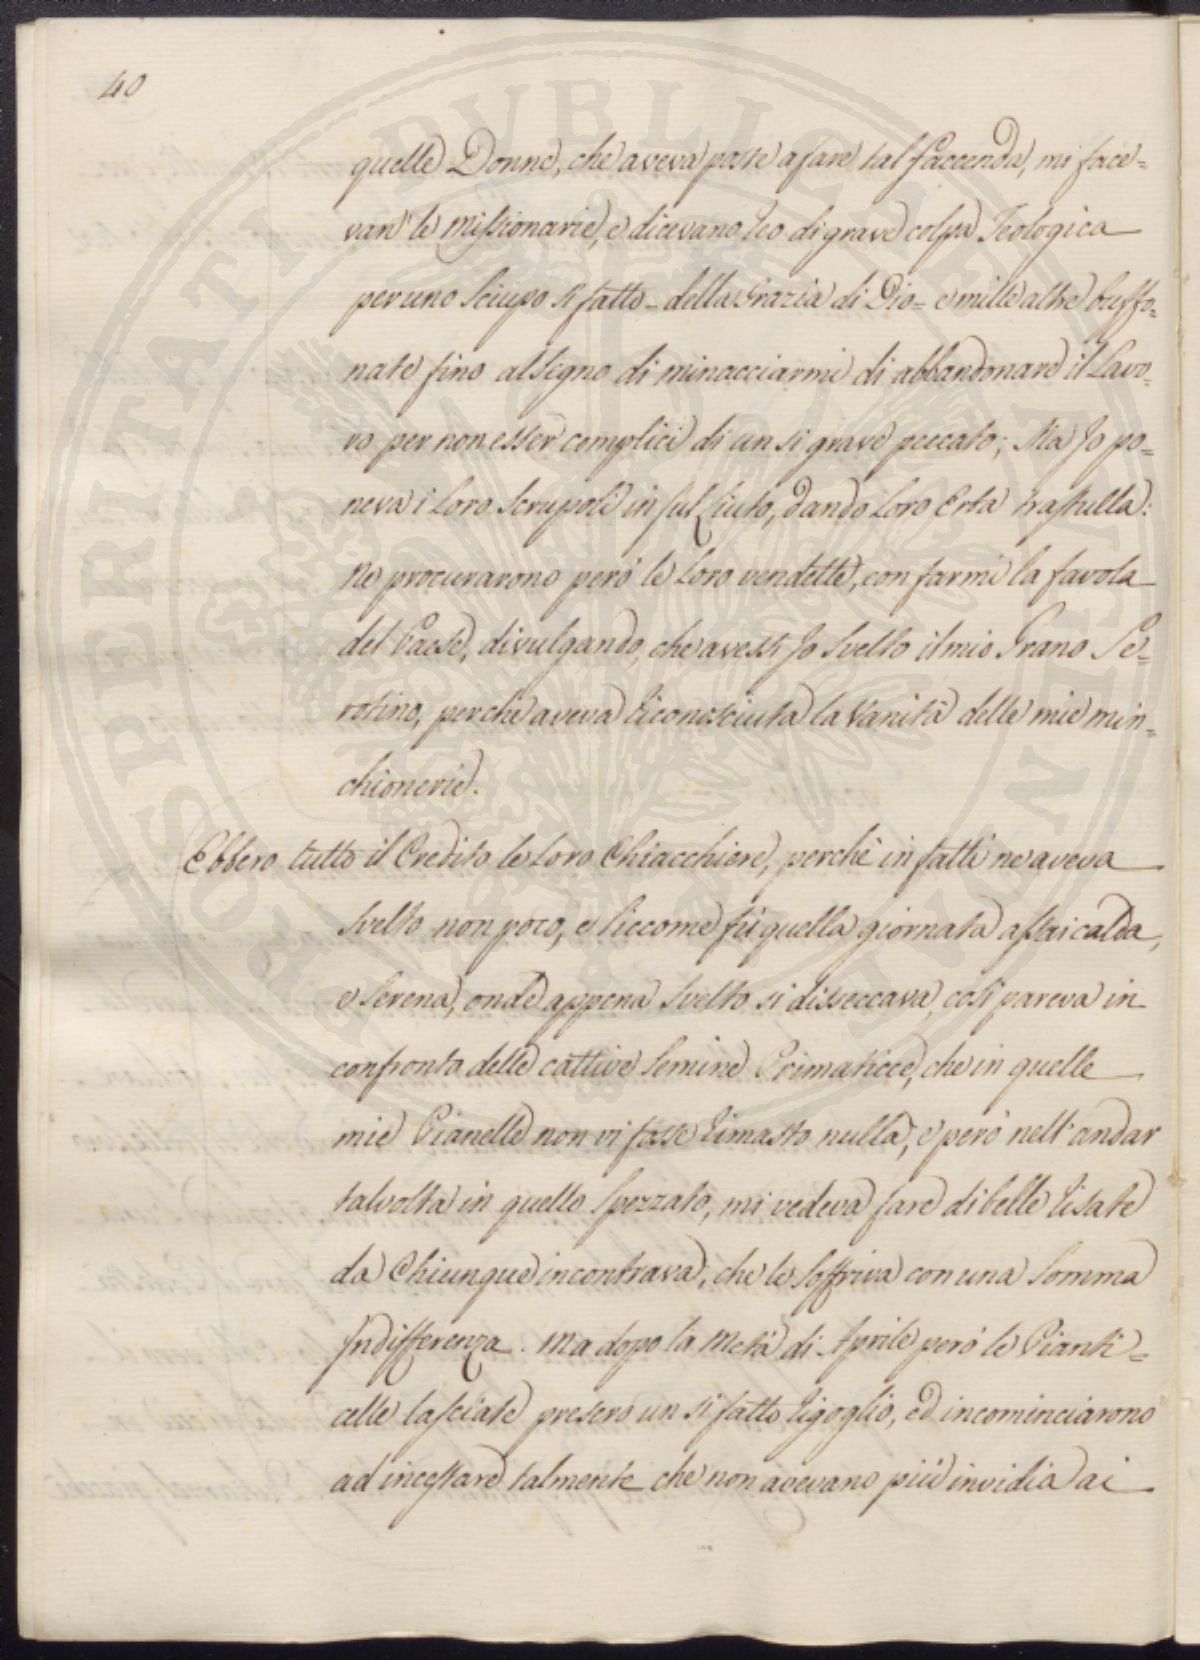 40
quelle Donne, che aveva poste a fare tal faccenda, mi face=
van' le missionarie, e dicevano reo di grave colpa Teologica
per uno sciupo si fatto - della Grazia di Dio - e mille altre buffo=
nate fino al segno di minacciarmi di abbandonare il Lavo=
ro per non esser complici di un si grave peccato; Ma Jo po=
neva i Loro Scrupoli in sul Liuto, dando Loro Erba trastulla:
Ne procurarono peró le Loro vendette, con farmi la favola
del Paese, divulgando, che avessi Jo svelto il mio Grano Se=
rotino, perche aveva riconosciuta la Vanità delle mie min=
chionerie.
Ebbero tutto il Credito le Loro Chiacchiere, perchè in fatti ne aveva
svelto non poco, e siccome fù quella giornata assai calda,
e Serena, onde appena svelto si disseccava, cosi pareva in
confronto delle cattive Semine Primaticce, che in quelle
mie Pianelle non vi fosse rimasto nulla; e peró nell' andar
talvolta in quello Spezzato, mi vedeva fare di belle risate
da Chiunque incontrava; che le soffriva con una Somma
Indifferenza. Ma dopo la Metà di Aprile peró le Pianti=
celle lasciate presero un si fatto rigoglio, ed incominciarono
ad incestare talmente che non avevano più invidia ai